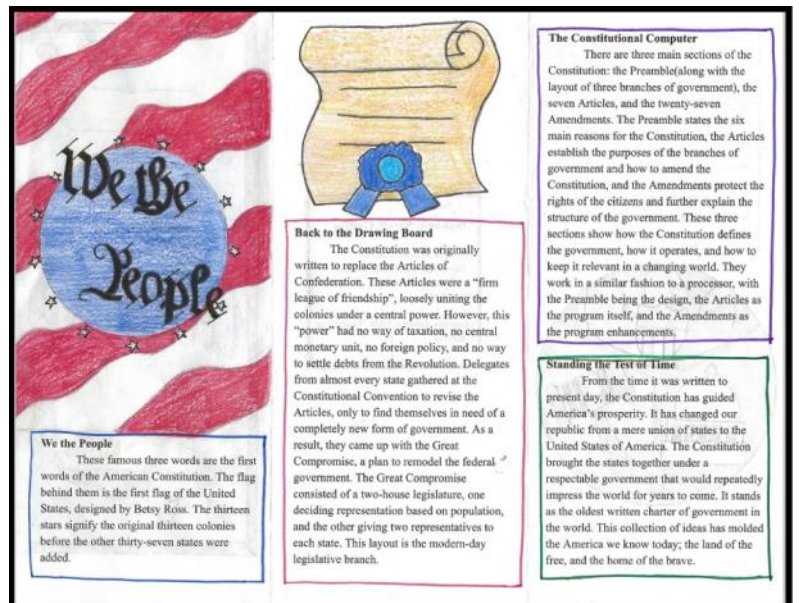 We the
People
We the People
These famous three words are the first
words of the American Constitution. The flag
behind them is the first flag of the United
States, designed by Betsy Ross. The thirteen
stars signify the original thirteen colonies
before the other thirty-seven states were
added.
Back to the Drawing Board
The Constitution was originally
written to replace the Articles of
Confederation. These Articles were a “firm
league of friendship”, loosely uniting the
colonies under a central power. However, this
“power” had no way of taxation, no central
monetary unit, no foreign policy, and no way
to settle debts from the Revolution. Delegates
from almost every state gathered at the
Constitutional Convention to revise the
Articles, only to find themselves in need of a
completely new form of government. As a
result, they came up with the Great
Compromise, a plan to remodel the federal
government. The Great Compromise
consisted of a two-house legislature, one
deciding representation based on population,
and the other giving two representatives to
each state. This layout is the modern-day
legislative branch.
The Constitutional Computer
There are three main sections of the
Constitution: the Preamble(along with the
layout of three branches of government), the
seven Articles, and the twenty-seven
Amendments. The Preamble states the six
main reasons for the Constitution, the Articles
establish the purposes of the branches of
government and how to amend the
Constitution, and the Amendments protect the
rights of the citizens and further explain the
structure of the government. These three
sections show how the Constitution defines
the government, how it operates, and how to
keep it relevant in a changing world. They
work in a similar fashion to a processor, with
the Preamble being the design, the Articles as
the program itself, and the Amendments as
the program enhancements.
Standing the Test of Time
From the time it was written to
present day, the Constitution has guided
America’s prosperity. It has changed our
republic from a mere union of states to the
United States of America. The Constitution
brought the states together under a
respectable government that would repeatedly
impress the world for years to come. It stands
as the oldest written charter of government in
the world. This collection of ideas has molded
the America we know today; the land of the
free, and the home of the brave.